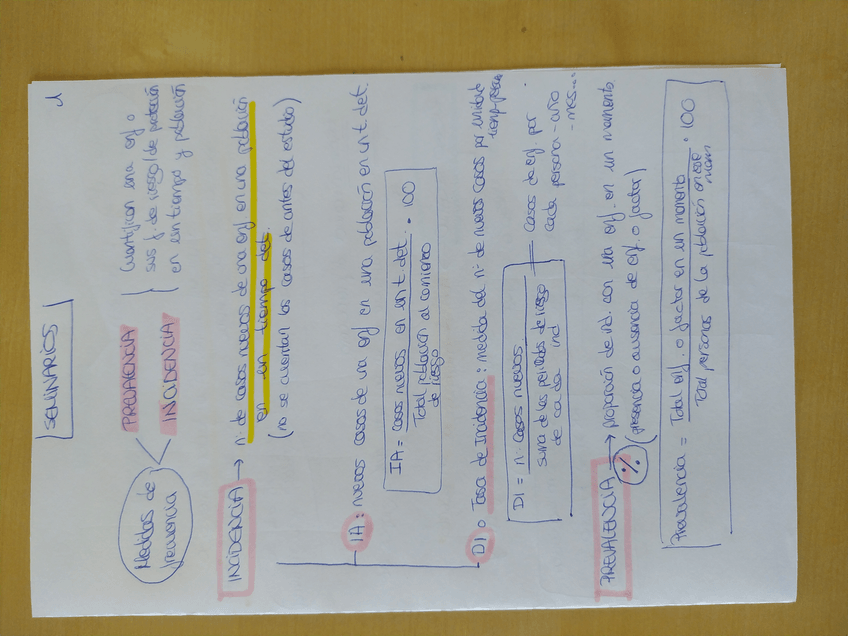 SEMINARIOS
1
Medidas de frecuencia
PREVALENCIA
INCIDENCIA
Cuantifican una enf o
sus f. de riesgo/de protección
en un tiempo y población
INCIDENCIA → n. de casos nuevos de una enf en una población
en un tiempo det.
(no se cuentan los casos de antes del estudio)
IA: nuevos casos de una enf en una población en un t. det.
IA = casos nuevos en un t. det. / Total población al comienzo de riesgo · 100
DI o Tasa de Incidencia: medida del n. de nuevos casos por unidad
DI = n. casos nuevos / suma de los periodos de riesgo de cada ind
= casos de enf. por
cada persona - año
- mes...
PREVALENCIA → proporción de ind. con una enf. en un momento
% (presencia o ausencia de enf. o factor)
Prevalencia = Total enf. o factor en un momento / Total personas de la población en ese mom · 100